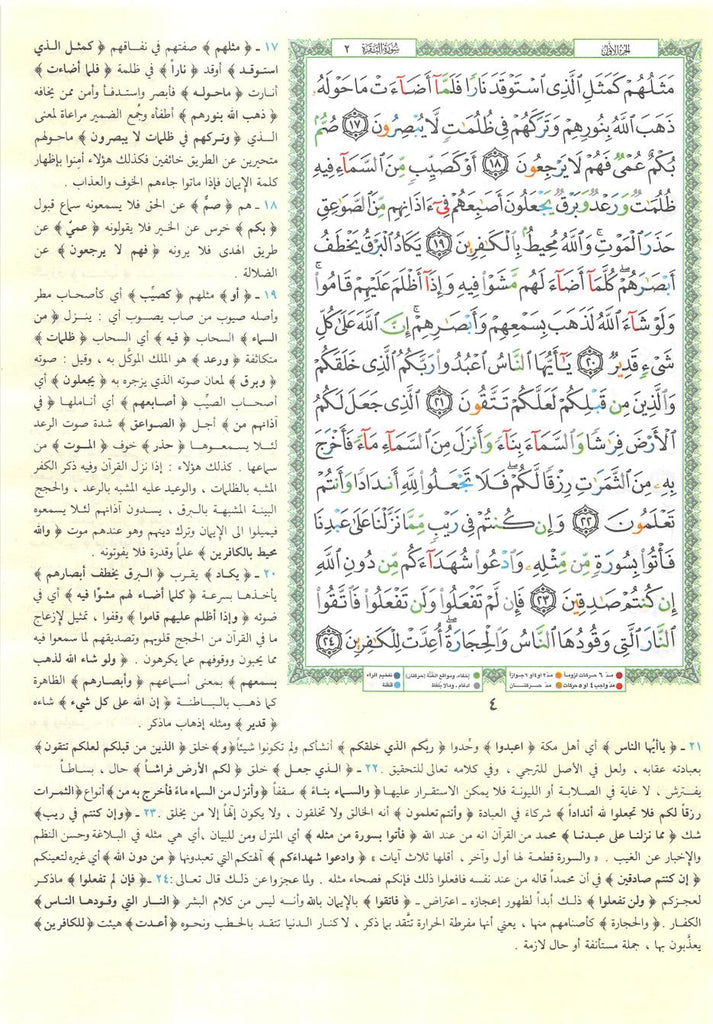 الجزء الأول
سورة البقرة ٢
مَثَلُهُمْ كَمَثَلِ ٱلَّذِى ٱسْتَوْقَدَ نَارًا فَلَمَّآ أَضَآءَتْ مَا حَوْلَهُۥ
ذَهَبَ ٱللَّهُ بِنُورِهِمْ وَتَرَكَهُمْ فِى ظُلُمَٰتٍ لَّا يُبْصِرُونَ ١٧ صُمٌّۢ
بُكْمٌ عُمْىٌ فَهُمْ لَا يَرْجِعُونَ ١٨ أَوْ كَصَيِّبٍ مِّنَ ٱلسَّمَآءِ فِيهِ
ظُلُمَٰتٌ وَرَعْدٌ وَبَرْقٌ يَجْعَلُونَ أَصَٰبِعَهُمْ فِىٓ ءَاذَانِهِم مِّنَ ٱلصَّوَٰعِقِ
حَذَرَ ٱلْمَوْتِ ۚ وَٱللَّهُ مُحِيطٌۢ بِٱلْكَٰفِرِينَ ١٩ يَكَادُ ٱلْبَرْقُ يَخْطَفُ
أَبْصَٰرَهُمْ ۖ كُلَّمَآ أَضَآءَ لَهُم مَّشَوْا۟ فِيهِ وَإِذَآ أَظْلَمَ عَلَيْهِمْ قَامُوا۟ ۚ
وَلَوْ شَآءَ ٱللَّهُ لَذَهَبَ بِسَمْعِهِمْ وَأَبْصَٰرِهِمْ ۚ إِنَّ ٱللَّهَ عَلَىٰ كُلِّ
شَىْءٍ قَدِيرٌ ٢٠ يَٰٓأَيُّهَا ٱلنَّاسُ ٱعْبُدُوا۟ رَبَّكُمُ ٱلَّذِى خَلَقَكُمْ
وَٱلَّذِينَ مِن قَبْلِكُمْ لَعَلَّكُمْ تَتَّقُونَ ٢١ ٱلَّذِى جَعَلَ لَكُمُ
ٱلْأَرْضَ فِرَٰشًا وَٱلسَّمَآءَ بِنَآءً وَأَنزَلَ مِنَ ٱلسَّمَآءِ مَآءً فَأَخْرَجَ
بِهِۦ مِنَ ٱلثَّمَرَٰتِ رِزْقًا لَّكُمْ ۖ فَلَا تَجْعَلُوا۟ لِلَّهِ أَندَادًا وَأَنتُمْ
تَعْلَمُونَ ٢٢ وَإِن كُنتُمْ فِى رَيْبٍ مِّمَّا نَزَّلْنَا عَلَىٰ عَبْدِنَا
فَأْتُوا۟ بِسُورَةٍ مِّن مِّثْلِهِۦ وَٱدْعُوا۟ شُهَدَآءَكُم مِّن دُونِ ٱللَّهِ
إِن كُنتُمْ صَٰدِقِينَ ٢٣ فَإِن لَّمْ تَفْعَلُوا۟ وَلَن تَفْعَلُوا۟ فَٱتَّقُوا۟
ٱلنَّارَ ٱلَّتِى وَقُودُهَا ٱلنَّاسُ وَٱلْحِجَارَةُ ۖ أُعِدَّتْ لِلْكَٰفِرِينَ ٢٤
مدّ ٦ حركات لزوماً مدّ ٢ او ٤ او ٦ جوازاً إخفاء، ومواقع الغُنَّة (حركتان) تفخيم الراء
مدّ واجب ٤ او ٥ حركات مدّ حركتان ادغام، ومالا يُلفَظ قلقلة
٤
١٧ ـ ﴿ مثلهم ﴾ صفتهم في نفاقهم ﴿ كمثل الذي
استوقد ﴾ أوقد ﴿ ناراً ﴾ في ظلمة ﴿ فلما أضاءت ﴾
أنارت ﴿ ماحوله ﴾ فأبصر واستدفأ وأمن ممن يخافه
﴿ ذهب الله بنورهم ﴾ أطفأه وجُمع الضمير مراعاة لمعنى
الذي ﴿ وتركهم في ظلمات لا يبصرون ﴾ ماحولهم
متحيرين عن الطريق خائفين فكذلك هؤلاء أمنوا بإظهار
كلمة الإيمان فإذا ماتوا جاءهم الخوف والعذاب .
١٨ ـ هم ﴿ صمٌّ ﴾ عن الحق فلا يسمعونه سماع قبول
﴿ بكم ﴾ خرس عن الخير فلا يقولونه ﴿ عميٌ ﴾ عن
طريق الهدى فلا يرونه ﴿ فهم لا يرجعون ﴾ عن
الضلالة .
١٩ ـ ﴿ أو ﴾ مثلهم ﴿ كصيِّب ﴾ أي كأصحاب مطر
وأصله صيوب من صاب يصوب أي : ينزل ﴿ من
السماء ﴾ السحاب ﴿ فيه ﴾ أي السحاب ﴿ ظلمات ﴾
متكاثفة ﴿ ورعد ﴾ هو الملك الموكل به ، وقيل : صوته
﴿ وبرق ﴾ لمعان صوته الذي يزجره به ﴿ يجعلون ﴾ أي
أصحاب الصيِّب ﴿ أصابعهم ﴾ أي أناملها ﴿ في
آذانهم من ﴾ أجل ﴿ الصواعق ﴾ شدة صوت الرعد
لئلا يسمعوها ﴿ حذر ﴾ خوف ﴿ الموت ﴾ من
سماعها . كذلك هؤلاء : إذا نزل القرآن وفيه ذكر الكفر
المشبه بالظلمات ، والوعيد عليه المشبه بالرعد ، والحجج
البينة المشبهة بالبرق ، يسدون آذانهم لئلا يسمعوه
فيميلوا الى الإيمان وترك دينهم وهو عندهم موت ﴿ والله
محيط بالكافرين ﴾ علماً وقدرة فلا يفوتونه .
٢٠ ـ ﴿ يكاد ﴾ يقرب ﴿ البرق يخطف أبصارهم ﴾
يأخذها بسرعة ﴿ كلما أضاء لهم مشوْا فيه ﴾ أي في
ضوئه ﴿ وإذا أظلم عليهم قاموا ﴾ وقفوا ، تمثيل لإزعاج
ما في القرآن من الحجج قلوبهم وتصديقهم لما سمعوا فيه
مما يحبون ووقوفهم عما يكرهون . ﴿ ولو شاء الله لذهب
بسمعهم ﴾ بمعنى أسماعهم ﴿ وأبصارهم ﴾ الظاهرة
كما ذهب بالباطنة ﴿ إن الله على كل شيء ﴾ شاءه
﴿ قدير ﴾ ومثله إذهاب ماذكر .
٢١ ـ ﴿ ياأيها الناس ﴾ أي أهل مكة ﴿ اعبدوا ﴾ وحِّدوا ﴿ ربكم الذي خلقكم ﴾ أنشأكم ولم تكونوا شيئاً ﴿ و ﴾ خلق ﴿ الذين من قبلكم لعلكم تتقون ﴾
بعبادته عقابه ، ولعل في الأصل للترجي ، وفي كلامه تعالى للتحقيق . ٢٢ ـ ﴿ الذي جعل ﴾ خلق ﴿ لكم الأرض فراشاً ﴾ حال ، بساطاً
يفترش ، لا غاية في الصلابة أو الليونة فلا يمكن الاستقرار عليها ﴿ والسماء بناءً ﴾ سقفاً ﴿ وأنزل من السماء ماءً فأخرج به من ﴾ أنواع ﴿ الثمرات
رزقاً لكم فلا تجعلوا لله أنداداً ﴾ شركاءَ في العبادة ﴿ وأنتم تعلمون ﴾ أنه الخالق ولا تخلقون ، ولا يكون إلهاً إلا من يخلق . ٢٣ ـ ﴿ وإن كنتم في ريب ﴾
شك ﴿ مما نزلنا على عبدنا ﴾ محمد من القرآن انه من عند الله ﴿ فأتوا بسورة من مثله ﴾ أي المنزل ومن للبيان ، أي هي مثله في البلاغة وحسن النظم
والإخبار عن الغيب . « والسورة قطعة لها أول وآخر ، أقلها ثلاث آيات » ﴿ وادعوا شهداءكم ﴾ آلهتكم التي تعبدونها ﴿ من دون الله ﴾ أي غيره لتعينكم
﴿ إن كنتم صادقين ﴾ في أن محمداً قاله من عند نفسه فافعلوا ذلك فإنكم فصحاء مثله . ولما عجزوا عن ذلك قال تعالى : ٢٤ ـ ﴿ فإن لم تفعلوا ﴾ ماذكر
لعجزكم ﴿ ولن تفعلوا ﴾ ذلك أبداً لظهور إعجازه ـ اعتراض ـ ﴿ فاتقوا ﴾ بالإيمان بالله وأنه ليس من كلام البشر ﴿ النار التي وقودها الناس ﴾
الكفار . ﴿ والحجارة ﴾ كأصنامهم منها ، يعني أنها مفرطة الحرارة تتَّقد بما ذكر ، لا كنار الدنيا تتقد بالحطب ونحوه ﴿ أعدت ﴾ هيئت ﴿ للكافرين ﴾
يعذَّبون بها ، جملة مستأنفة أو حال لازمة .